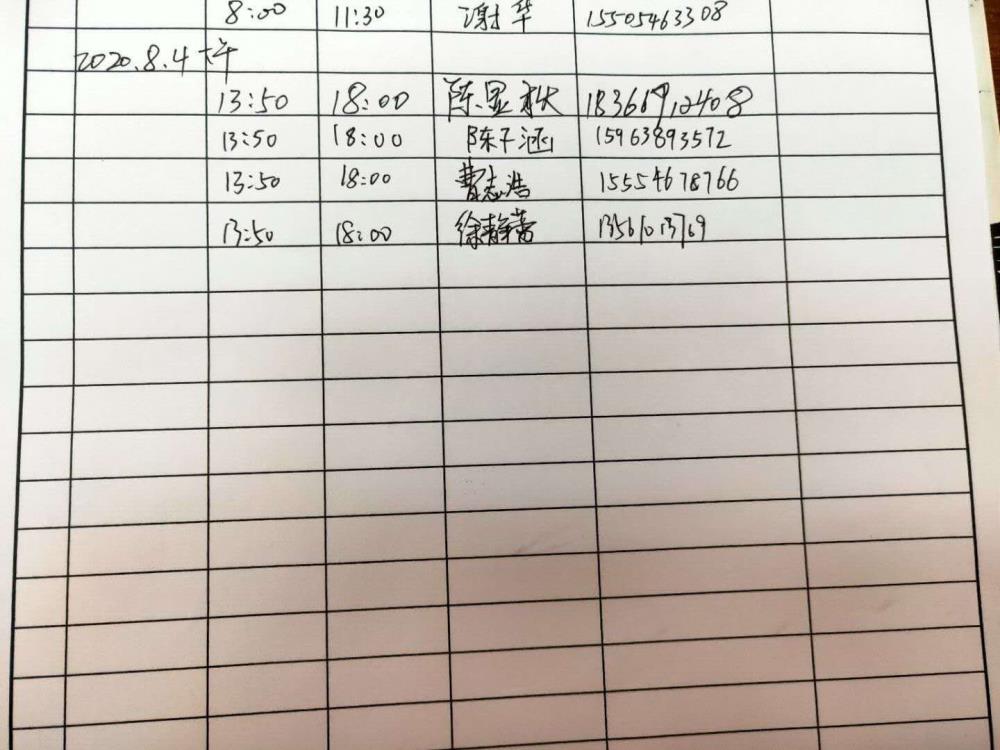 8:00 11:30 谢华 15505463308
2020.8.4 下午
13:50 18:00 陈显秋 18366912408
13:50 18:00 陈子涵 15963893572
13:50 18:00 曹志浩 15554678766
13:50 18:00 徐静蕾 13561013769